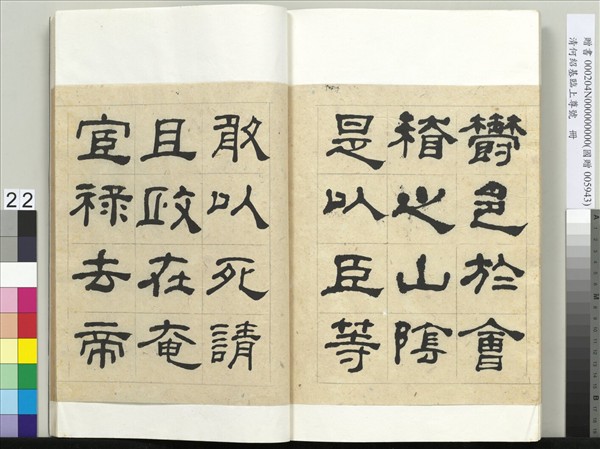 贈書 000204N000000000(國贈 005943)
清何紹基臨上尊號 冊
欝邑於會
稽之山陰
是以臣等
敢以死請
且政在奄
宦祿去帝
22